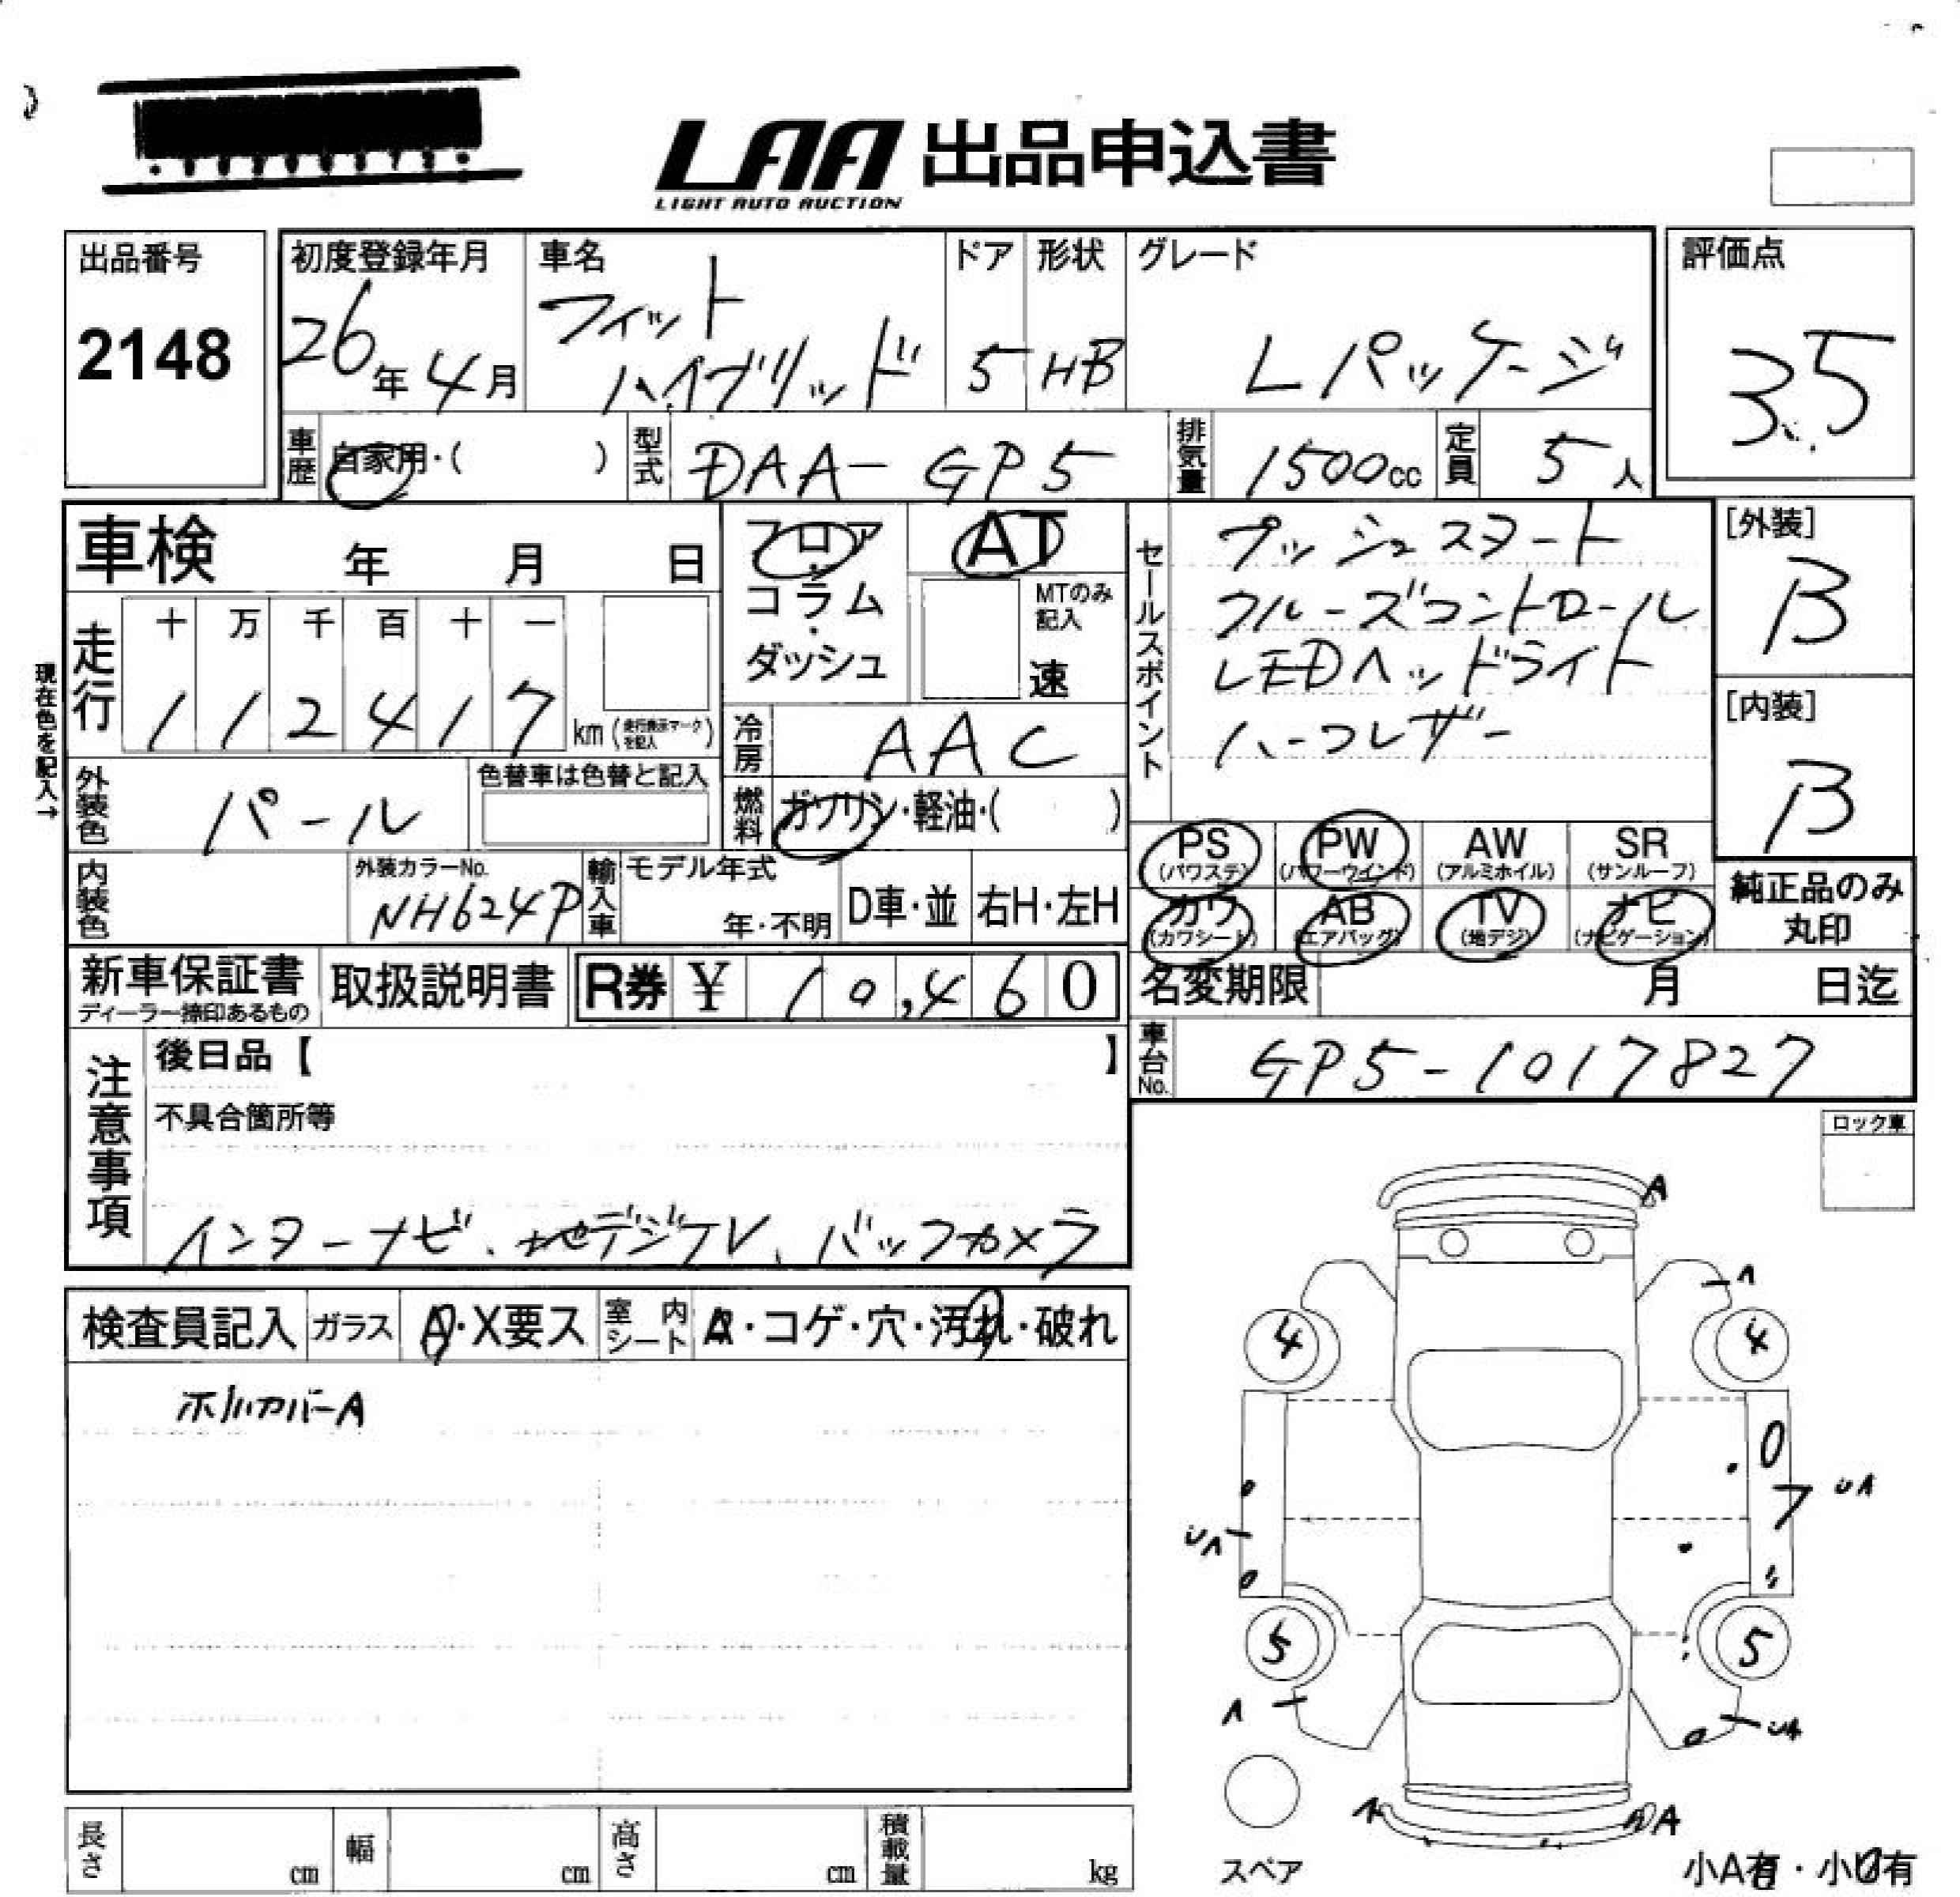 LAA 出品申込書
LIGHT AUTO AUCTION
出品番号
2148
初度登録年月
26年4月
車名
フィット
ハイブリッド
ドア
5
形状
HB
グレード
Lパッケージ
評価点
3.5
車歴
自家用・( )
型式
DAA-GP5
排気量
1500cc
定員
5人
車検 年 月 日
フロア
・
コラム
・
ダッシュ
AT
MTのみ
記入
速
セールスポイント
プッシュスタート
クルーズコントロール
LEDヘッドライト
ハーフレザー
[外装]
B
[内装]
B
現在色を記入→
走行
十 万 千 百 十 一
1 1 2 4 1 7
km (走行表示マークを記入)
冷房
AAC
外装色
パール
色替車は色替と記入
燃料
ガソリン・軽油・( )
内装色
外装カラーNo.
NH624P
輸入車
モデル年式
年・不明
D車・並
右H・左H
PS
(パワステ)
PW
(パワーウインド)
AW
(アルミホイル)
SR
(サンルーフ)
カワ
(カワシート)
AB
(エアバッグ)
TV
(地デジ)
ナビ
(ナビゲーション)
純正品のみ
丸印
新車保証書
ディーラー捺印あるもの
取扱説明書
R券 ¥ 10,460
名変期限 月 日迄
車台No.
GP5-1017827
注意事項
後日品【 】
不具合箇所等
インターナビ、地デジTV、バックカメラ
ロック車
検査員記入
ガラス
A・X要ス
室内
シート
・コゲ・穴・汚れ・破れ
ホイルカバーA
A
A
4
4
UA
UA
5
5
A
UA
A
A
スペア
小A有・小U有
長さ cm
幅 cm
高さ cm
積載量 kg